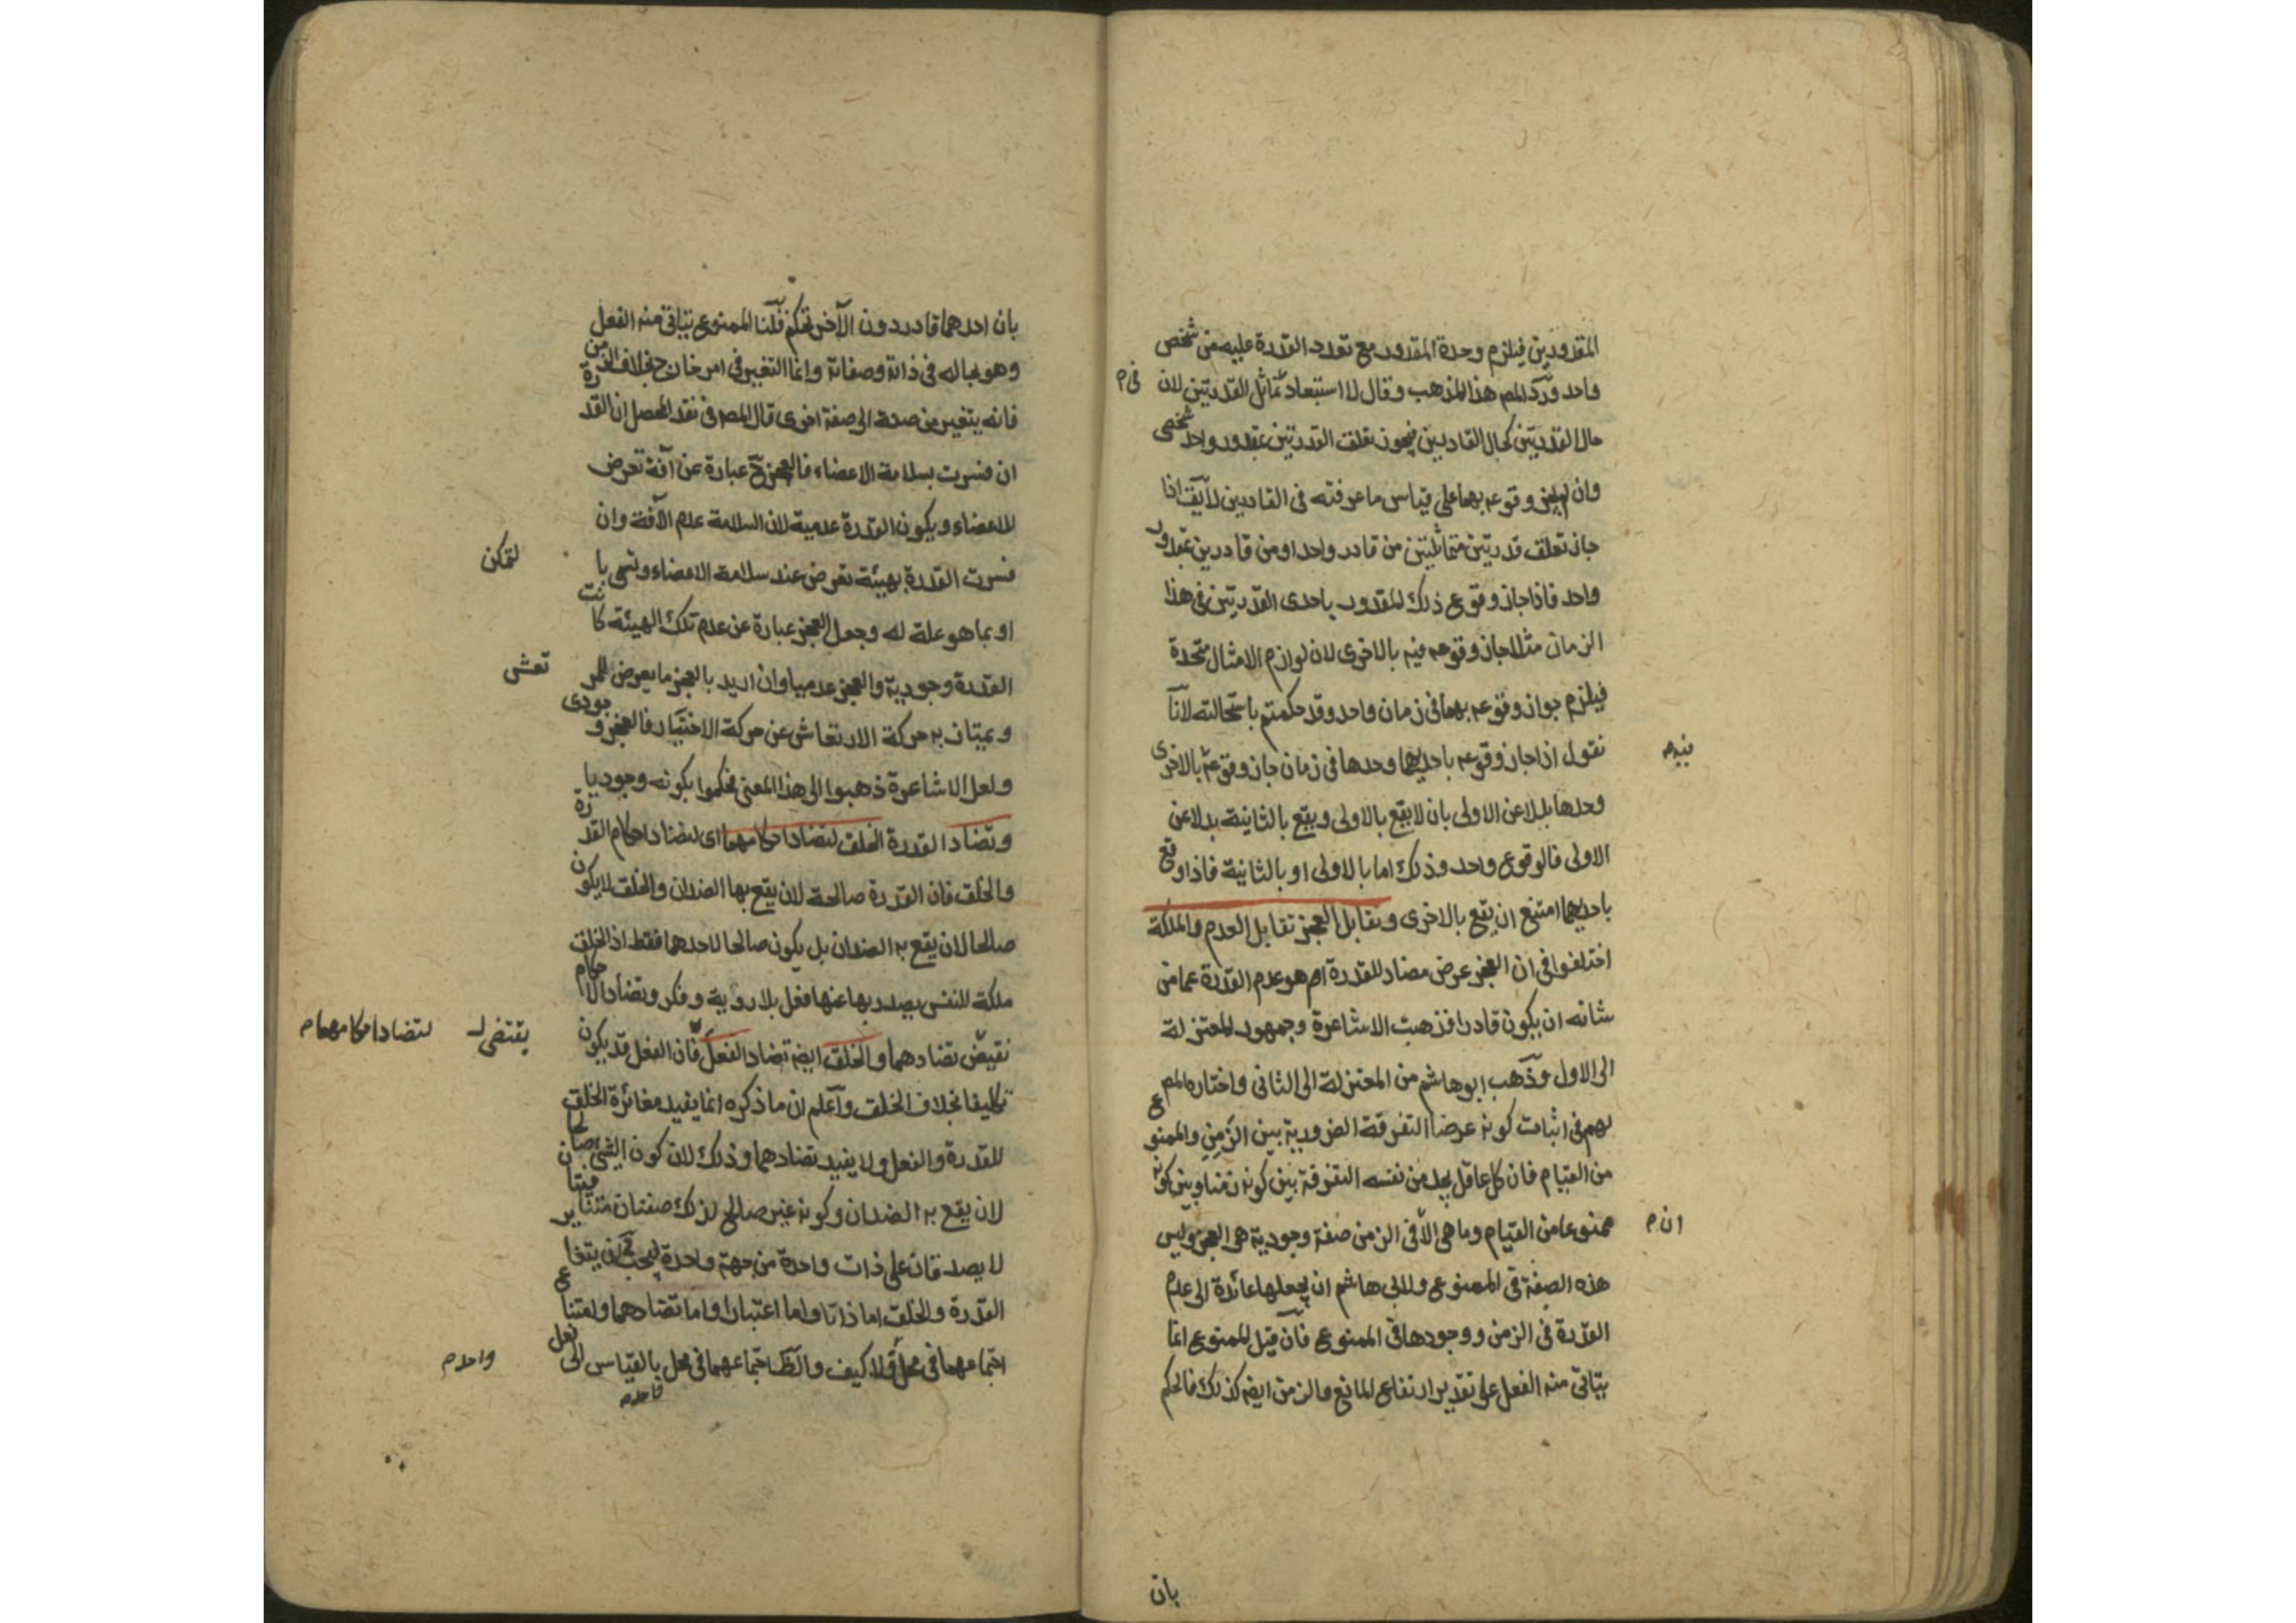 المقدورين فيلزم وحدة المقدور مع تعدد القدرة عليه من شخص
واحد وردّ المص هذا المذهب وقال لا استبعاد تماثل القدرتين لان
فى م
حال القدرتين كحال القادرين فيجوز تعلق القدرتين بمقدور واحد شخصى
وان لم يجز وقوعه بهما على قياس ما عرفته فى القادرين لا يق اذا
جاز تعلق قدرتين متماثلتين من قادر واحد او من قادرين بمقدور
واحد فاذا جاز وقوع ذلك المقدور باحدى القدرتين فى هذا
الزمان مثلا جاز وقوعه فيه بالاخرى لان لوازم الامثال متحدة
فيلزم جواز وقوعه بهما فى زمان واحد وقد حكمتم باستحالته لانا
نقول اذا جاز وقوعه باحديهما وحدها فى زمان جاز وقوعه بالاخرى
فيه م
وحدها بدلا عن الاولى بان لا يقع بالاولى ويقع بالثانية بدلا عن
الاولى فالوقوع واحد وذلك اما بالاولى او بالثانية فاذا وقع
باحديهما امتنع ان يقع بالاخرى وتقابل العجز تقابل العدم والملكة
اختلفوا فى ان العجز عرض مضاد للقدرة ام هو عدم القدرة عما من
شانه ان يكون قادرا فذهبت الاشاعرة وجمهور المعتزلة
الى الاول وذهب ابو هاشم من المعتزلة الى الثانى واختاره المص
لهم فى اثبات كونه عرضا التفرقة الضرورية بين الزمن والممنوع
من القيام فان كل عاقل يجد من نفسه التفرقة بين كونه زمنا وبين كونه
ممنوعا من القيام وما هى الا فى الزمن صفة وجودية هى العجز وليس
ان م
هذه الصفة فى الممنوع ولابى هاشم ان يجعلها عائدة الى عدم
القدرة فى الزمن ووجودها فى الممنوع فان قيل الممنوع انما
يتاتى منه الفعل على تقدير ارتفاع المانع والزمن ايضه كذلك فالحكم
بان
بان احدهما قادر دون الاخر تحكم قلنا الممنوع يتاتى منه الفعل
وهو بحاله فى ذاته وصفاته وانما التغير فى امر خارج بخلاف الزمن
فانه يتغير من صفة الى صفة اخرى قال المص فى نقد المحصل ان القدرة
ان فسرت بسلامة الاعضاء فالعجز ح عبارة عن آفة تعرض
للاعضاء ويكون القدرة عدمية لان السلامة عدم الآفة وان
فسرت القدرة بهيئة تعرض عند سلامة الاعضاء وتسمى با
لتمكن
او بما هو علة له وجعل العجز عبارة عن عدم تلك الهيئة كانت
القدرة وجودية والعجز عدميا وان اريد بالعجز ما يعرض للمر
تعش
ويمتاز به حركة الارتعاش عن حركة الاختيار فالعجز وجودى
ولعل الاشاعرة ذهبوا الى هذا المعنى فحكموا بكونه وجوديا
وتضاد القدرة الخلق لتضاد احكامهما اى لتضاد احكام القدرة
والخلق فان القدرة صالحة لان يقع بها الضدان والخلق لا يكون
صالحا لان يقع به الضدان بل يكون صالحا لاحدهما فقط اذ الخلق
ملكة للنفس يصدر بها عنها فعل بلا روية وفكر وتضاد الاحكام
يقتضى تضادهما والخلق ايضه تضاد الفعل فان الفعل قد يكون
يقتضى
لتضاد احكامهما م
تكليفا بخلاف الخلق واعلم ان ما ذكره انما يفيد مغائرة الخلق
للقدرة والفعل ولا يفيد تضادهما وذلك لان كون الشئ صالحا
لان يقع به الضدان وكونه غير صالح لذلك صفتان متنافيتان
لا يصدقان على ذات واحدة من جهة واحدة فيجب ان يتغاير
القدرة والخلق اما ذاتا واما اعتبارا واما تضادهما وامتناع
اجتماعهما فى محل فلا كيف والظ اجتماعهما فى محل بالقياس الى فعل
واحد م
واحد م